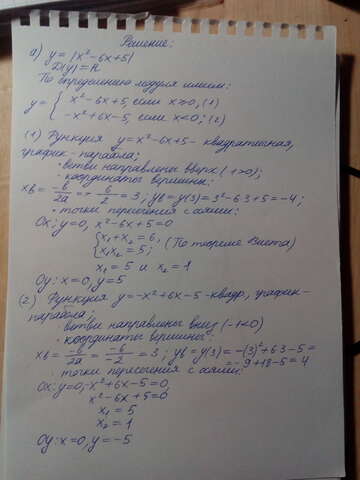 Решение:
а) y = |x²-6x+5|
D(y)=R
По определению модуля имеем:
y = { x²-6x+5, если x≥0, (1)
-x²+6x-5, если x<0; (2)
(1) Функция y=x²-6x+5 - квадратичная,
график - парабола;
• ветви направлены вверх (1>0);
• координаты вершины:
xв = -b/2a = - -6/2 = 3; yв=y(3)=3²-6·3+5=-4;
• точки пересечения с осями:
Ox: y=0, x²-6x+5=0
{ x₁+x₂=6,
x₁x₂=5; (По теореме Виета)
x₁=5 и x₂=1
Oy: x=0, y=5
(2) Функция y=-x²+6x-5 - квадр., график -
парабола;
• ветви направлены вниз (-1<0)
• координаты вершины:
xв = -b/2a = -6/-2 = 3; yв=y(3)=-(3)²+6·3-5=
=-9+18-5=4
• точки пересечения с осями:
Ox: y=0, -x²+6x-5=0,
x²-6x+5=0
x₁=5
x₂=1
Oy: x=0, y=-5